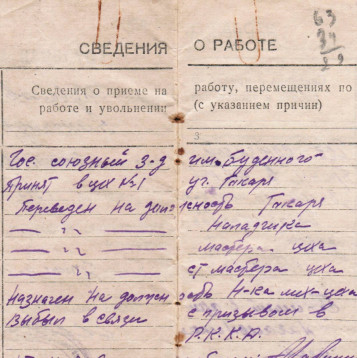 63
СВЕДЕНИЯ О РАБОТЕ
Сведения о приеме на работу, перемещениях по
работе и увольнении (с указанием причин)
3
Гос. союзный з-д им. Буденного
Принят в цех №1 уч. Токаря
Переведен на должность Токаря
— " — Наладчика
— " — мастера цеха
— " — ст мастера цеха
Назначен на должность Н-ка мех-цеха
Выбыл в связи с призывом в
Р.К.К.А.